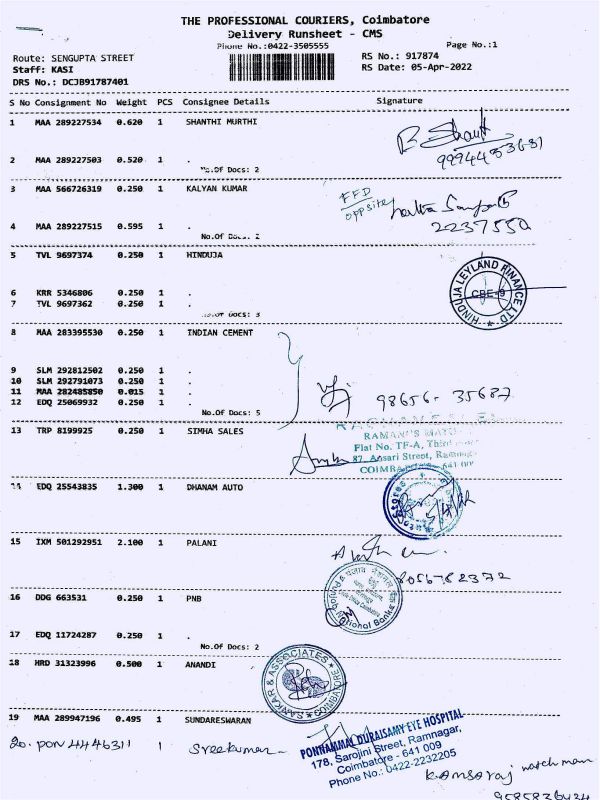 THE PROFESSIONAL COURIERS, Coimbatore
Delivery Runsheet - CMS
Phone No.:0422-3505555
Page No.:1
Route: SENGUPTA STREET
RS No.: 917874
Staff: KASI
RS Date: 05-Apr-2022
DRS No.: DCJB91787401
S No Consignment No Weight PCS Consignee Details Signature
1 MAA 289227534 0.620 1 SHANTHI MURTHI
2 MAA 289227503 0.520 1 .
No.Of Docs: 2
3 MAA 566726319 0.250 1 KALYAN KUMAR
FFD
opposite
4 MAA 289227515 0.595 1 .
No.Of
5 TVL 9697374 0.250 1 HINDUJA
HINDUJA LEYLAND FINANCE LTD.
CBE-9
6 KRR 5346806 0.250 1 .
7 TVL 9697362 0.250 1 .
Docs: 3
8 MAA 283395530 0.250 1 INDIAN CEMENT
9 SLM 292812502 0.250 1 .
10 SLM 292791073 0.250 1 .
11 MAA 282485850 0.015 1 .
98656-35687
12 EDQ 25069932 0.250 1 .
No.Of Docs: 5
13 TRP 8199925 0.250 1 SIMHA SALES
Flat No. TF-A, Third
87, Ansari Street,
14 EDQ 25543835 1.300 1 DHANAM AUTO
15 IXM 501292951 2.100 1 PALANI
16 DDG 663531 0.250 1 PNB
17 EDQ 11724287 0.250 1 .
No.Of Docs: 2
18 HRD 31323996 0.500 1 ANANDI
& ASSOCIATES
19 MAA 289947196 0.495 1 SUNDARESWARAN
20. PON 4446311 1 Sreekumar
PONNAMMAL DURAISAMY EYE HOSPITAL
178, Sarojini Street, Ramnagar,
Coimbatore - 641 009
Phone No.: 0422-2232205
Kamsaraj watch man